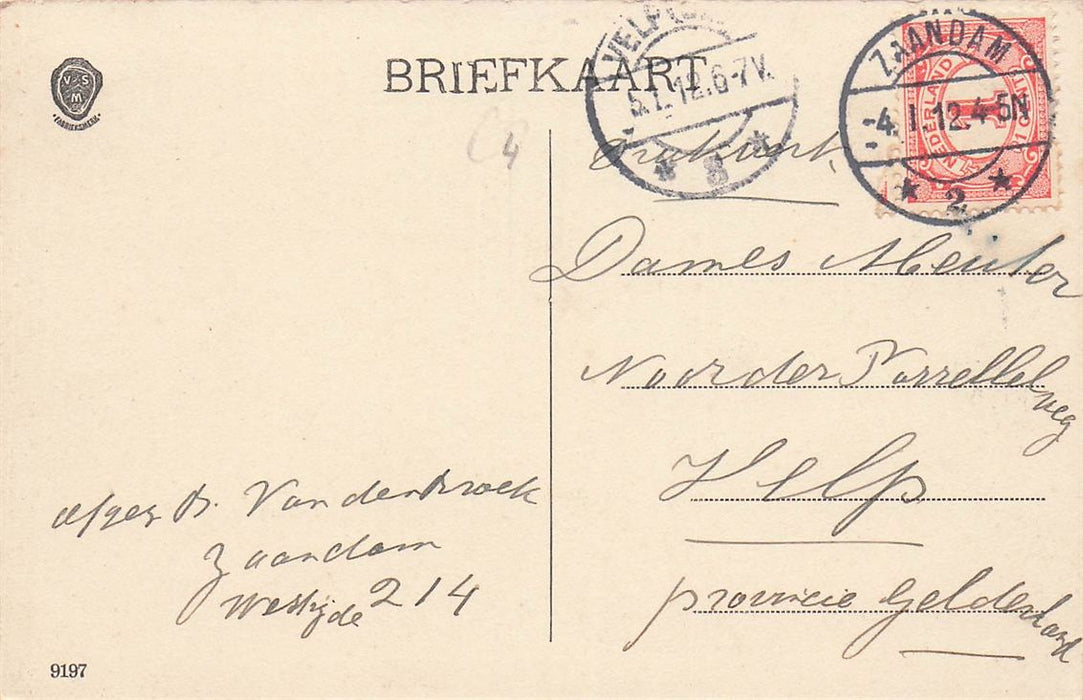 V S M
FABRIEKSMERK
BRIEFKAART
VELP
5.1.12.6-7V.
ZAANDAM
-4.1.12.4-5N
2
NEDERLAND
1
Dames
Noorder Parrellel
weg
Velp
provincie Gelderland
afgez B. Van den Broek
Zaandam
Westzyde 214
9197